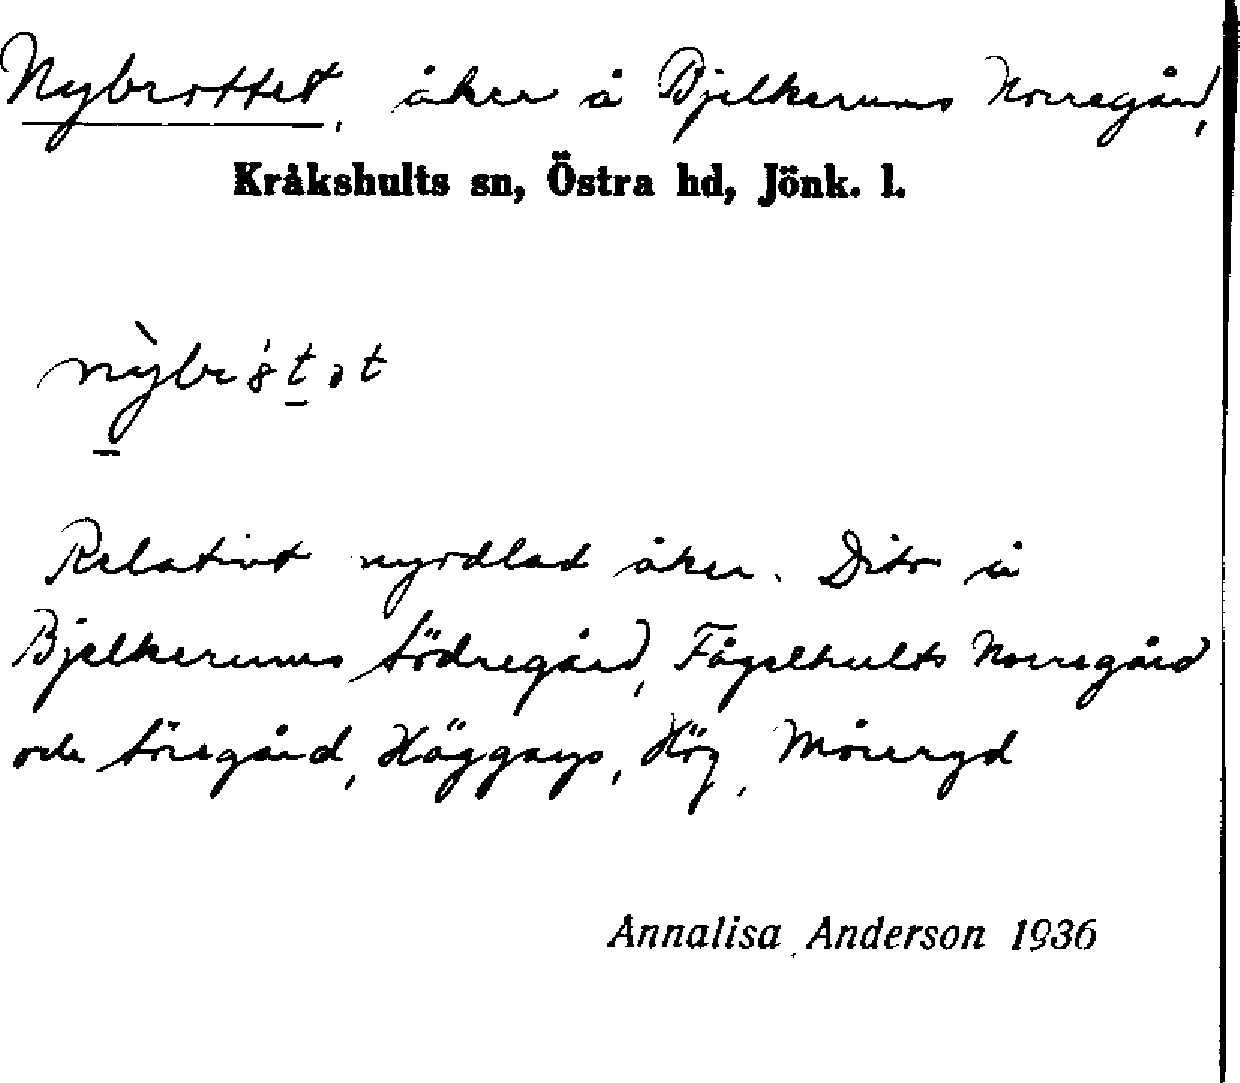 Nybrottet, åker å Bjelkerums Norregård,
Kråkshults sn, Östra hd, Jönk. l.
Relativt nyodlad åker. Dito å
Bjelkerums Södregård, Fågelhults Norregård
och Söregård, Häggsys, Hög, Måreryd
Annalisa Anderson 1936